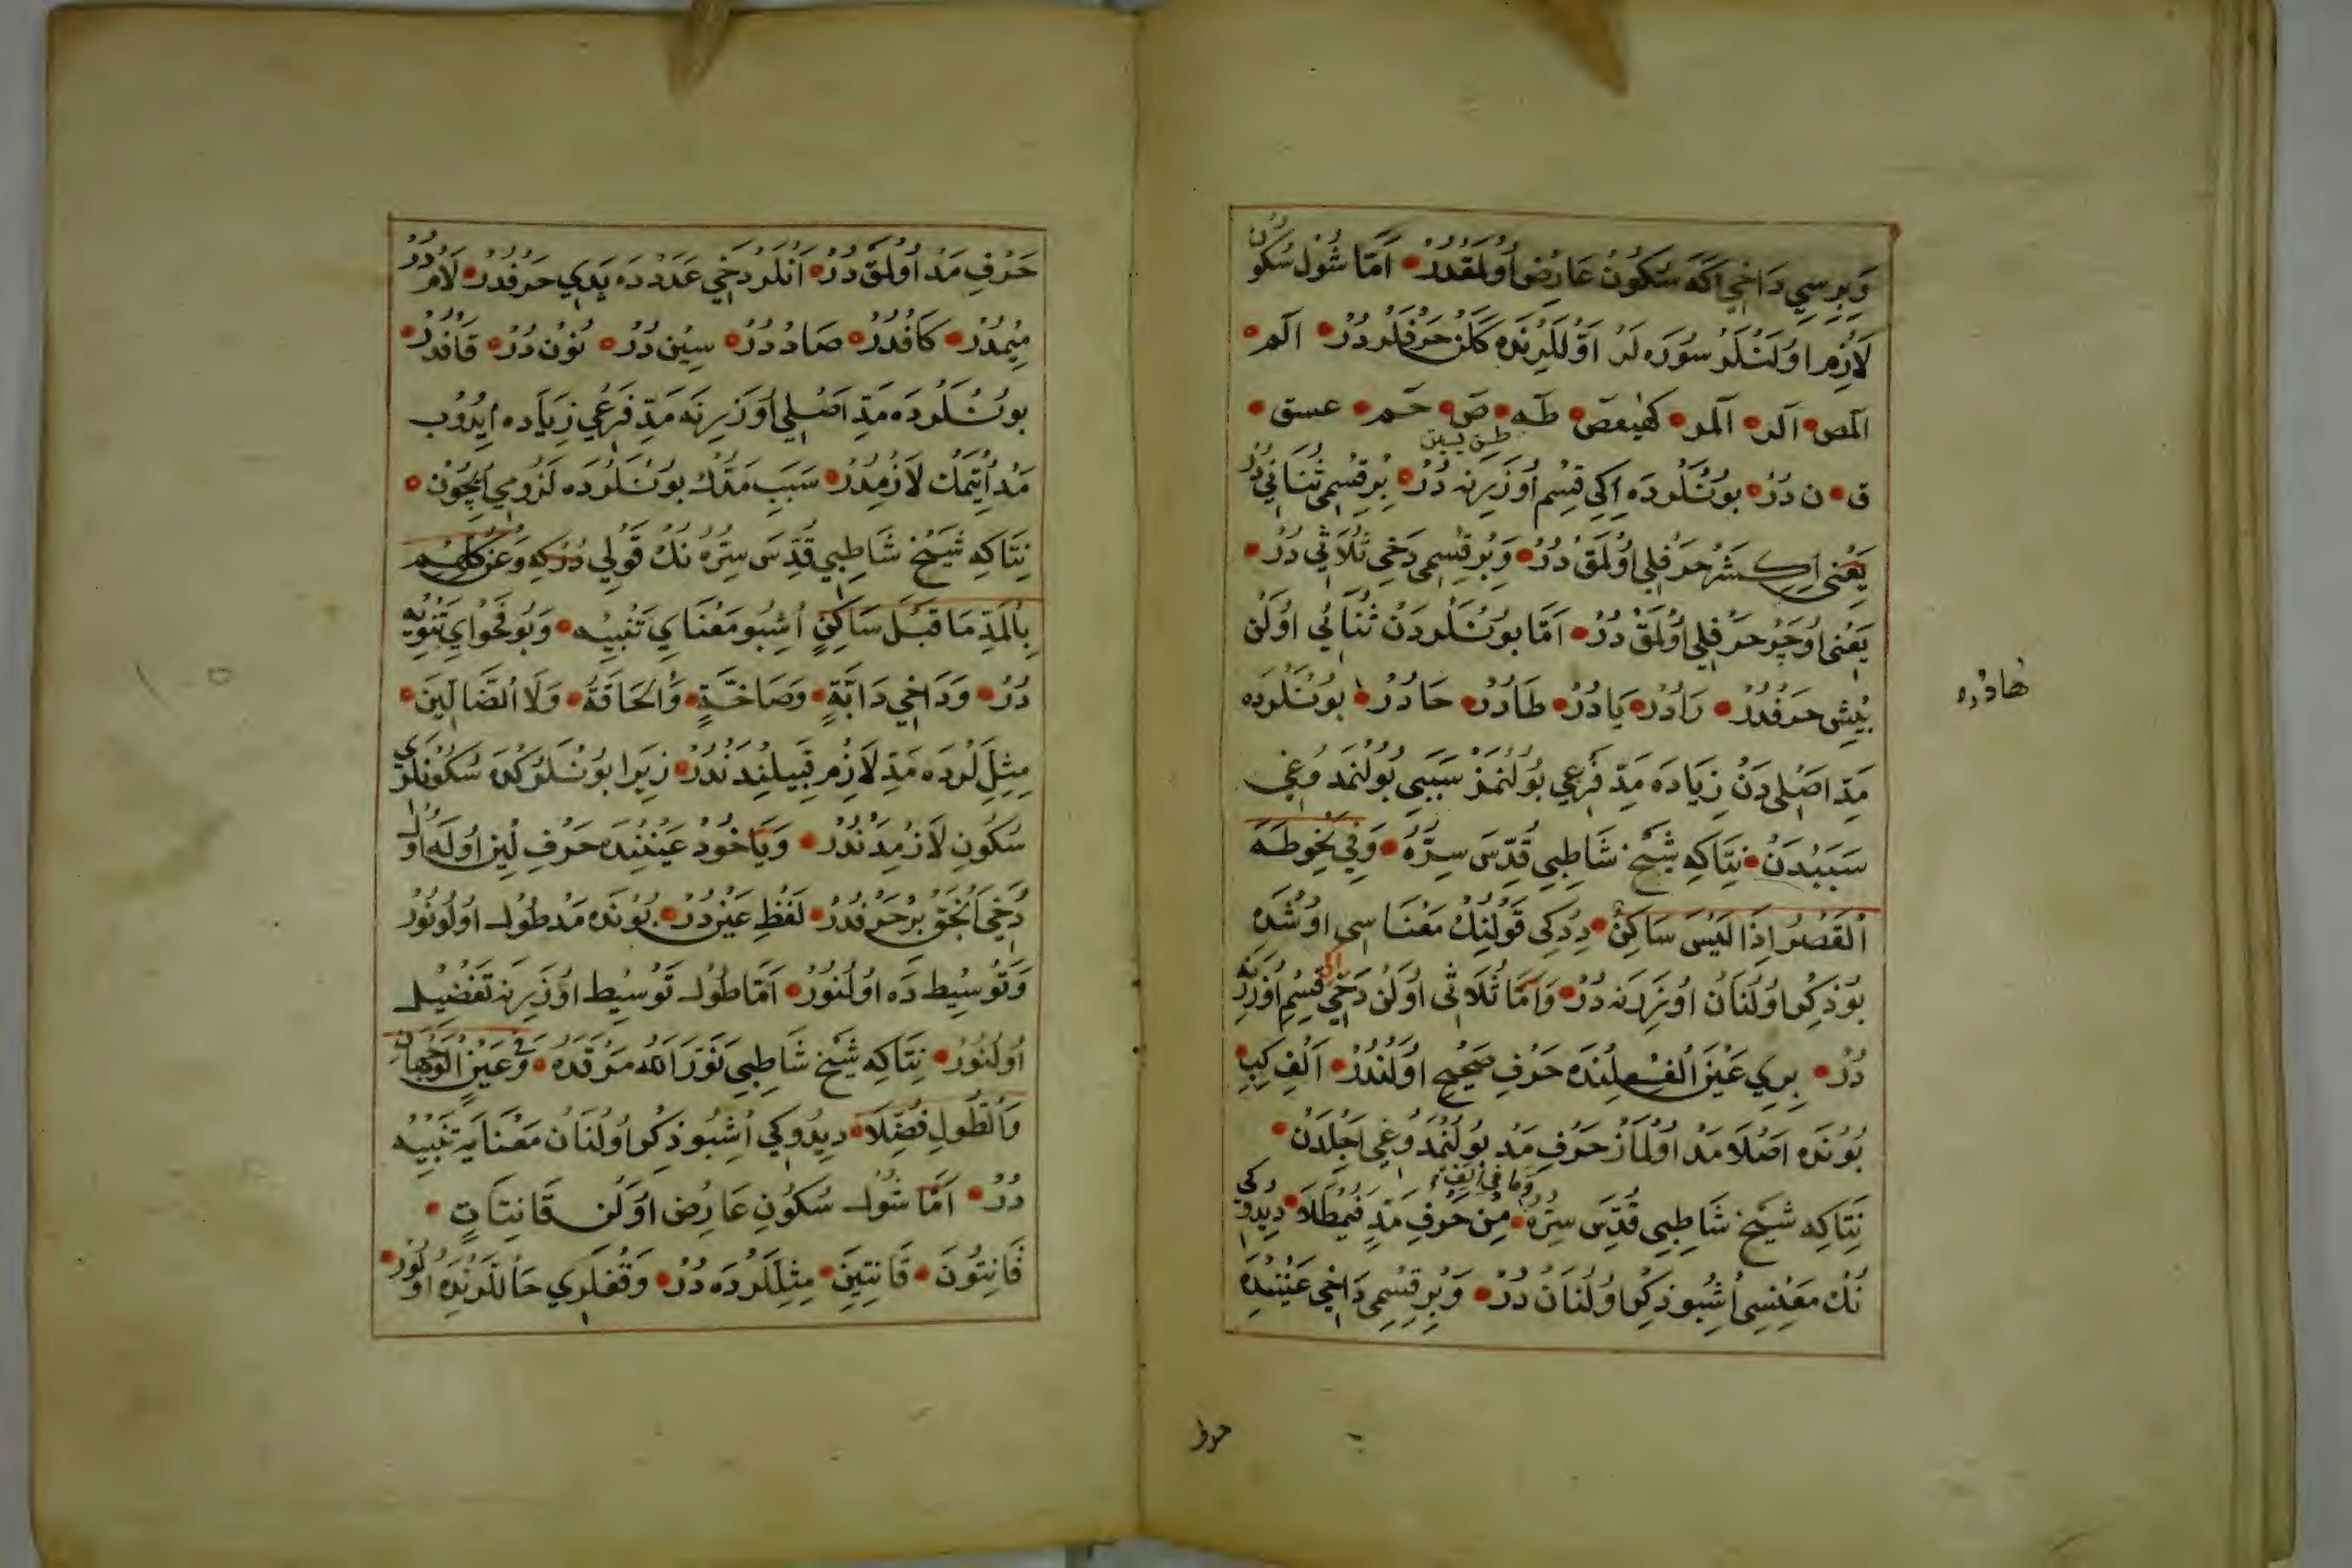 وَبِرِسِي دَاخِي اَكَه سُكُونُ عَارِضْ اُولْمَقْدُرْ اَمَّا شُولْ سُكُونْ
لَازِمْ اوُلَنْلَرْ سُورَه لَرْ اَوَّللَرِنْدَه كَلَنْ حَرْفلَردُرْ الٓم
الٓمٓص الٓر الٓمٓر كٓهٰيٰعٓصٓ طٰه صٓ حٓم عسق
طس يس
ق ن دُرْ بُونْلَردَه اِكِي قِسِم اُوزَرِنَه دُرْ بِرقِسْمِي ثُنَائِي دُرْ
يَعْنِي اِكِشَرْ حَرْفلِي اوُلْمَقْ دُرْ وَبِرقِسْمِي دَخِي ثُلَاثِي دُرْ
يَعْنِي اُوچَرْ حَرْفلِي اوُلْمَقْ دُرْ اَمَّا بُونْلَردَنْ ثُنَائِي اوُلَنْ
بَيْشِ حَرْفدُرْ رَادُرْ يَادُرْ طَادُرْ حَادُرْ بُونْلَردَه
هَادُرْ ره
مَدِّ اَصْلِيدَنْ زِيَادَه مَدِّ فَرْعِي بُولُنْمَزْ سَبَبِي بُولُنْمَدوُغِي
سَبَبِدَنْ نِتَاكِه شَيْخ شَاطِبِي قُدِّسَ سِرُّهُ وَفِي نَحْوِ طٰهَ
اَلْقَصْرُ اِذْ لَيْسَ سَاكِنٌ دِدكِي قَوْلِنِكْ مَعْنَاسِي اوُشْدَه
بُو ذِكِر اوُلُنَانْ اوُزَرِنَه دُرْ وَاَمَّا ثُلَاثِي اوُلَنْ دَخِي اكى قِسِم اُوزَرِنَه
دُرْ بِرِي عَيْنَ الْفِعْلِنْدَه حَرْفِ صَحِيحْ اوُلَنْدُرْ اَلِفْ كِبِ
بُونْدَه اَصْلَا مَدْ اوُلْمَازْ حَرْفِ مَدْ بُولُنْمَدوُغِي اَجِلْدَنْ
وَمَا فِي اَلِفْ
نِتَاكِه شَيْخ شَاطِبِي قُدِّسَ سِرُّهُ مِنْ حَرْفِ مَدٍّ فَيُمْطَلَا دِيدوُكِي
نُكْ مَعْنِسِي اُشِبُو ذِكِر اوُلُنَانْ دُرْ وَبِرقِسْمِي دَاخِي عَيْنِنْدَه
حرف
حَرْفِ مَدْ اوُلْمَقْ دُرْ اَنْلَر دَخِي عَدَدْدَه يَدِي حَرْفدُرْ لَامْ دُرْ
مِيمْدُرْ كَافْدُرْ صَادْ دُرْ سِينْ دُرْ نُونْ دُرْ قَافْدُرْ
بُونْلَردَه مَدِّ اَصْلِي اُوزَرِنَه مَدِّ فَرْعِي زِيَادَه اِيدُوبْ
مَدْ اِتْمَكْ لَازِمْدُرْ سَبَبِ مَدُّكْ بُونْلَردَه لُزُومِي اِچُونْ
نِتَاكِه شَيْخ شَاطِبِي قُدِّسَ سِرُّهُ نُكْ قَوْلِي دُرْكِه وَعَنْ كُلِّهِمْ
بِالْمَدِّ مَا قَبْلَ سَاكِنٍ اُشِبُو مَعْنَايِ تَنْبِيه وَبُو فَحْوَايِ تَنْوِيه
دُرْ وَدَاخِي دَابَّةٍ وَصَاخَّةٍ وَالْحَاقَّةُ وَلَا الضَّالِّينَ
مِثِللَردَه مَدِّ لَازِمْ قَبِيلِنْدَنْدُرْ زِيرَا بُونْلَركْ سُكُونلَرِي
سُكُونِ لَازِمْدَنْدُرْ وَيَا خُودْ عَيْنِنْدَه حَرْفِ لِينْ اوُلَه اوُلْ
دَخِي اَنْجَقْ بِرحَرْفدُرْ لَفْظِ عَيْن دُرْ بُونْدَه مَدْ طُولْ اوُلُونُورْ
وَتَوْسِيط دَه اوُلُنُورْ اَمَّا طُولْ تَوْسِيط اوُزَرِنَه تَفْضِيل
اوُلُنُورْ نِتَاكِه شَيْخ شَاطِبِي نَوَّرَ اللّٰهُ مَرْقَدَهُ وَفِي عَيْنٍ الْوَجْهَانِ
وَالطُّولُ فُضِّلَا دِيدوُكِي اُشِبُو ذِكِر اوُلُنَانْ مَعْنَايَه تَنْبِيه
دُرْ اَمَّا شُولْ سُكُونِ عَارِضْ اوُلَنْ قَانِتَاتٍ
قَانِتُونَ قَانِتِينَ مِثِللَردَه دُرْ وَقْفلَرِي حَاللَرِنْدَه اوُلُورْ